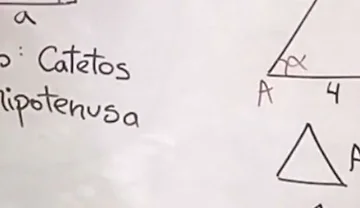 a
: Catetos
hipotenusa
α
A
4
A